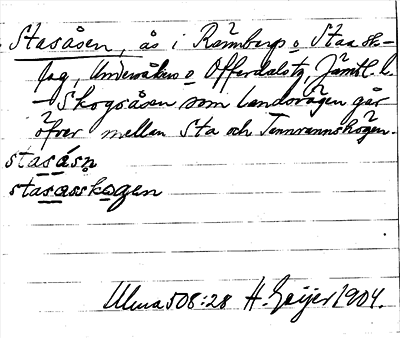 Stasåsen, ås i Rännberg o Staa sk-
fag, Undersåkers o Offerdals tg, Jämtl. l.
– Skogsåsen som landsvägen går
öfver mellan Sta och Tännrannshögen.
stasåsn̥
stasasskogen
Ulma 508:28 H. Geijer 1904.